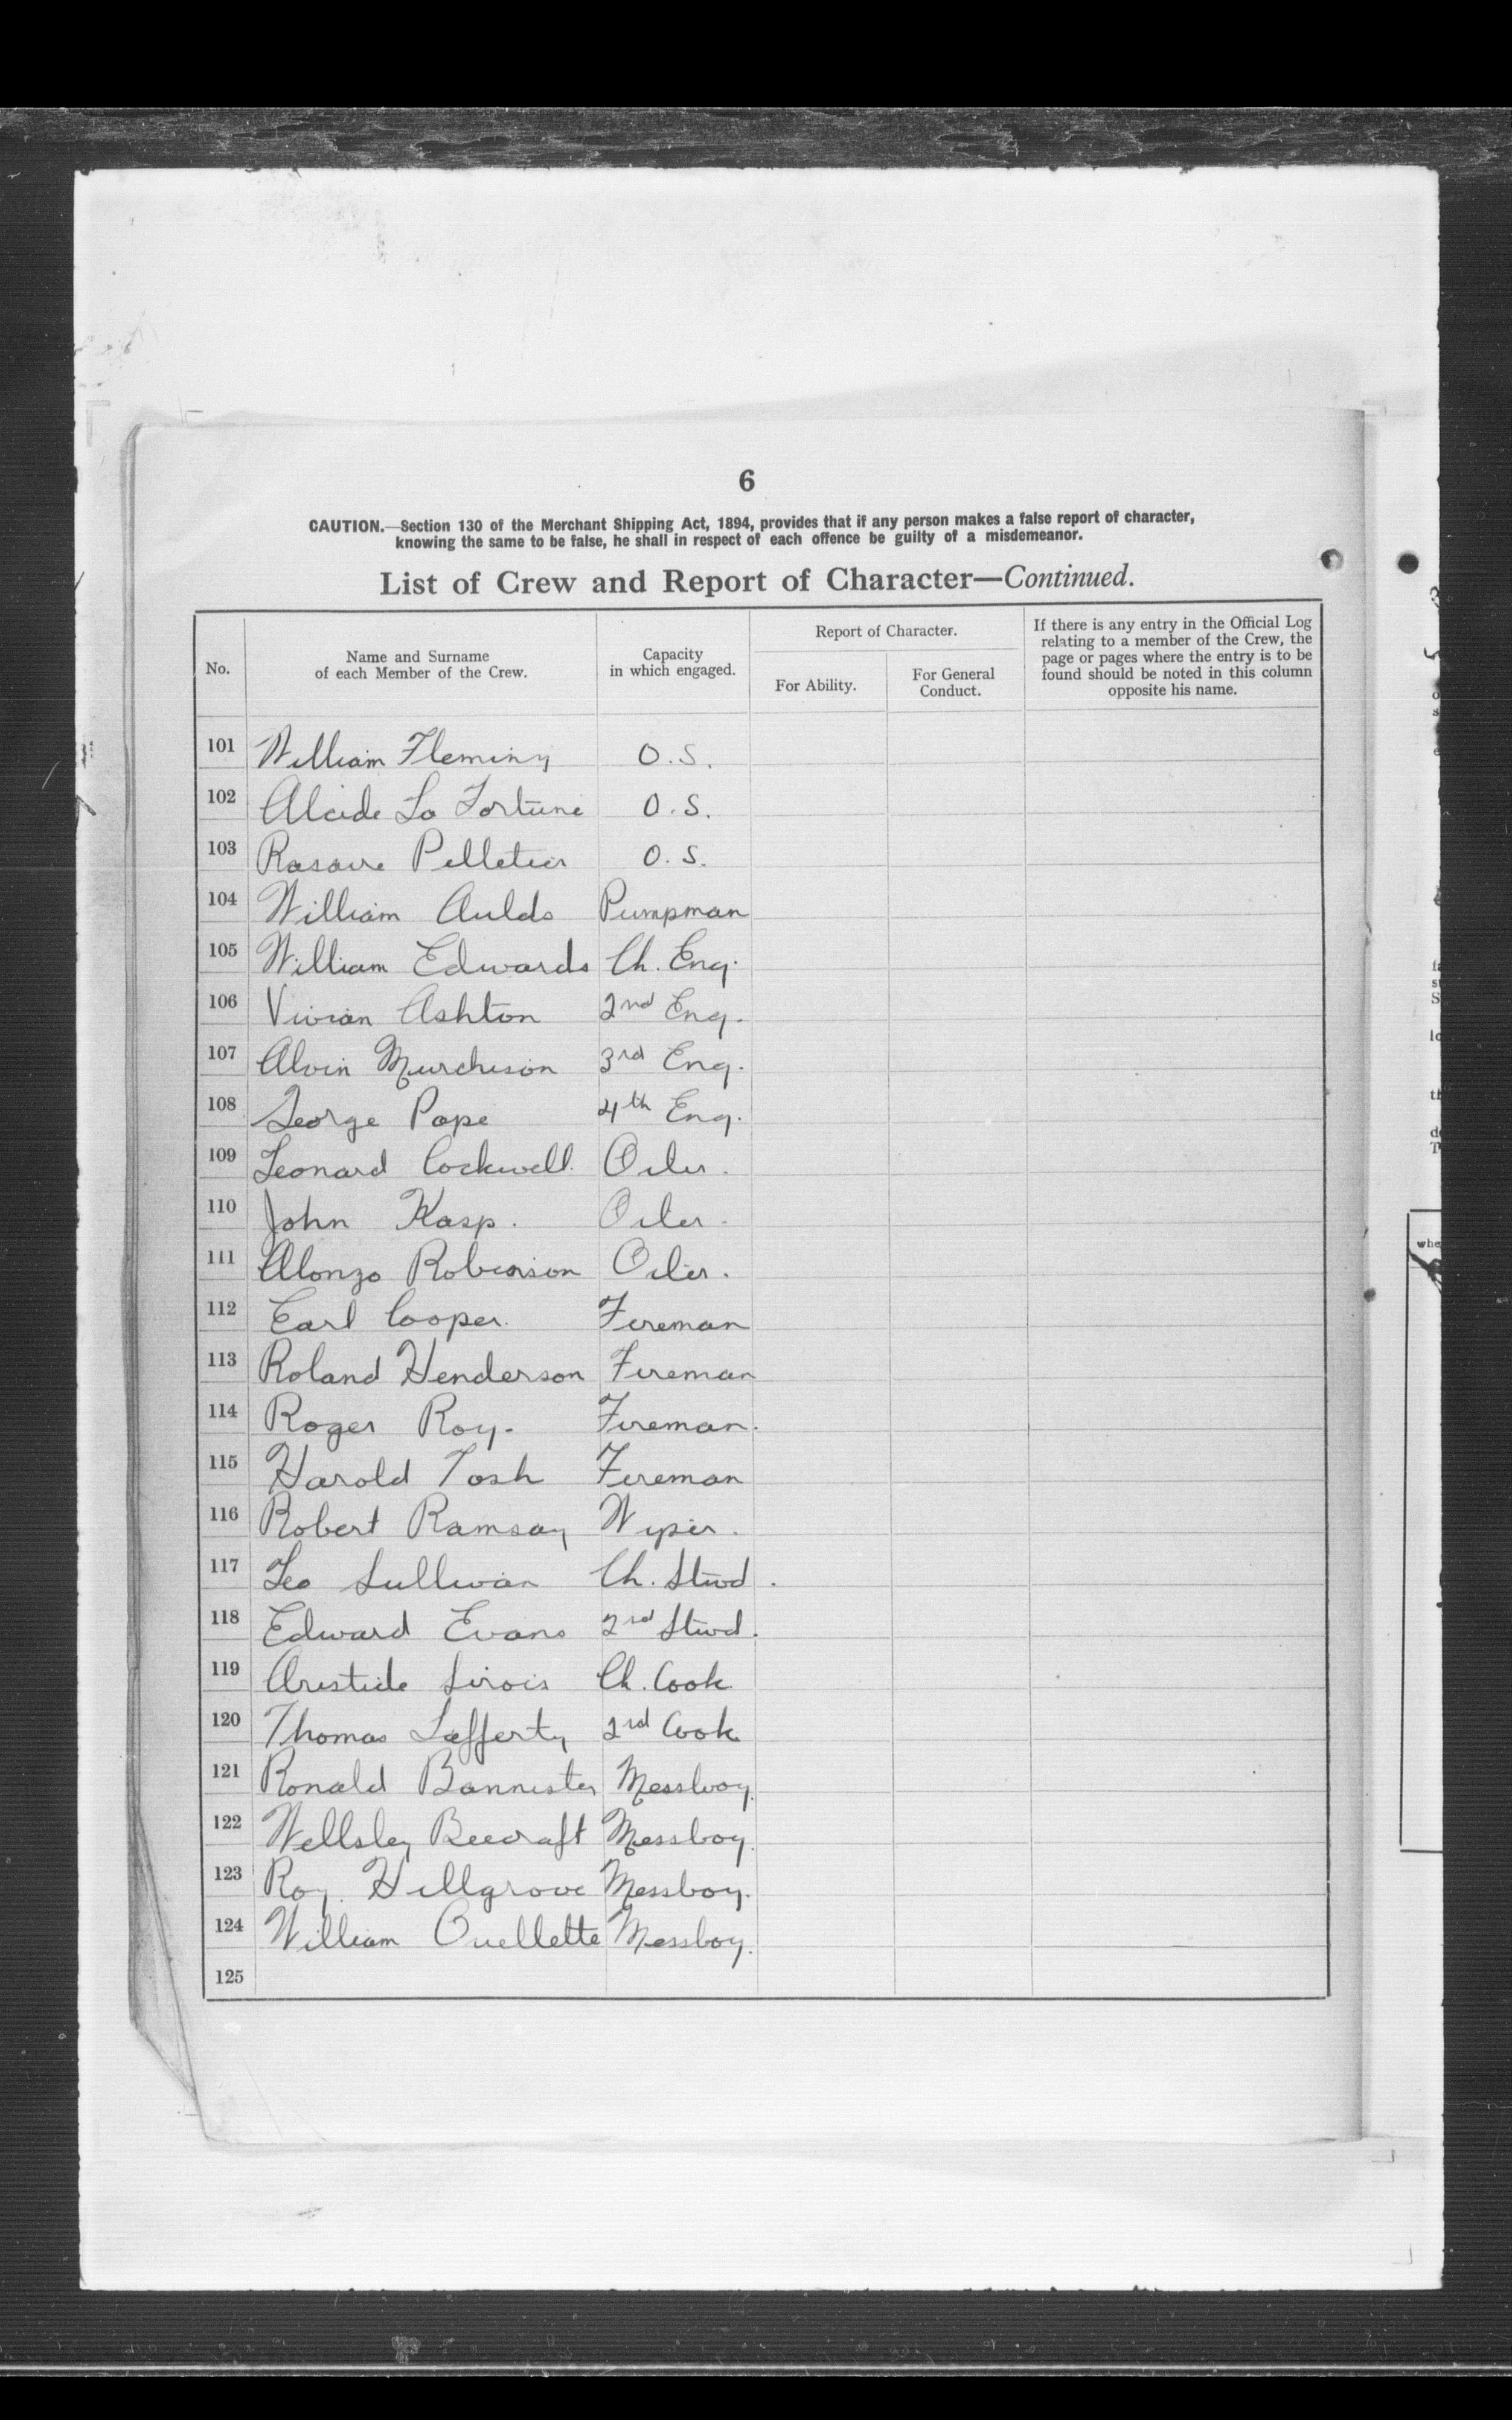 6
CAUTION.—Section 130 of the Merchant Shipping Act, 1894, provides that if any person makes a false report of character,
knowing the same to be false, he shall in respect of each offence be guilty of a misdemeanor.
List of Crew and Report of Character—Continued.
No. Name and Surname of each Member of the Crew. Capacity in which engaged. Report of Character. For Ability. For General Conduct. If there is any entry in the Official Log relating to a member of the Crew, the page or pages where the entry is to be found should be noted in this column opposite his name.
101 William Fleming O.S.
102 Alcide La Fortune O.S.
103 Rasaire Pelletier O.S.
104 William Aulds Pumpman
105 William Edwards Ch. Eng.
106 Vivian Ashton 2nd Eng.
107 Alvin Murchison 3rd Eng.
108 George Pope 4th Eng.
109 Leonard Cockwell. Oiler.
110 John Kasp. Oiler.
111 Alonzo Robinson Oiler.
112 Earl Cooper. Fireman
113 Roland Henderson Fireman
114 Roger Roy. Fireman.
115 Harold Tosh Fireman
116 Robert Ramsay Wiper.
117 Leo Sullivan Ch. Stwd.
118 Edward Evans 2nd Stwd.
119 Aristide Sirois Ch. Cook
120 Thomas Lafferty 2nd Cook
121 Ronald Bannister Messboy.
122 Wellsley Beecraft Messboy.
123 Roy. Hillgrove Messboy.
124 William Ouellette Messboy.
125
whe